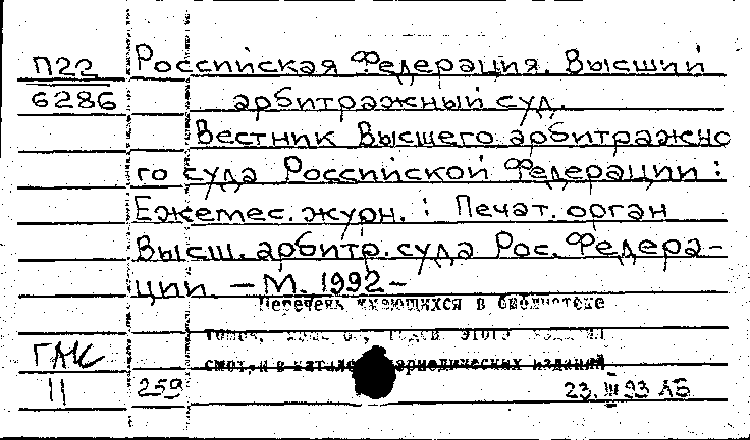 П22 Российская Федерация. Высший
6286 арбитражный суд.
Вестник Высшего арбитражно
го суда Российской Федерации :
Ежемес. журн. : Печат. орган
Высш. арбитр. суда Рос. Федера-
ции. — М. 1992 —
Перечень имеющихся в библиотеке
томов, этого издания
смотри в каталоге периодических изданий
ГАК
11 259 23.III 93 АБ